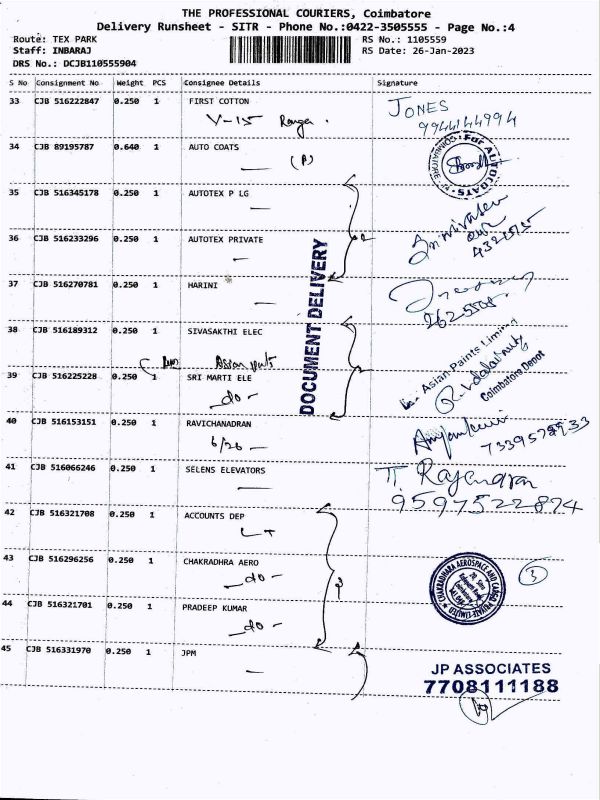 THE PROFESSIONAL COURIERS, Coimbatore
Delivery Runsheet - SITR - Phone No.:0422-3505555 - Page No.:4
Route: TEX PARK RS No.: 1105559
Staff: INBARAJ RS Date: 26-Jan-2023
DRS No.: DCJB110555904
S No Consignment No Weight PCS Consignee Details Signature
33 CJB 516222847 0.250 1 FIRST COTTON JONES
V-15 9944144994
34 CJB 89195787 0.640 1 AUTO COATS
(P) For AUTOCOATS COIMBATORE
35 CJB 516345178 0.250 1 AUTOTEX P LG
36 CJB 516233296 0.250 1 AUTOTEX PRIVATE
37 CJB 516270781 0.250 1 HARINI
DOCUMENT DELIVERY
38 CJB 516189312 0.250 1 SIVASAKTHI ELEC
Asian paints Asian Paints Limited
39 CJB 516225228 0.250 1 SRI MARTI ELE Coimbatore Depot
do
40 CJB 516153151 0.250 1 RAVICHANADRAN
6/26 7339578933
41 CJB 516066246 0.250 1 SELENS ELEVATORS T. Rajendran
9597522874
42 CJB 516321708 0.250 1 ACCOUNTS DEP
LT
43 CJB 516296256 0.250 1 CHAKRADHRA AERO CHAKRADHARA AEROSPACE AND CARGO PRIVATE LIMITED 3
do
44 CJB 516321701 0.250 1 PRADEEP KUMAR
do
45 CJB 516331970 0.250 1 JPM
JP ASSOCIATES
7708111188